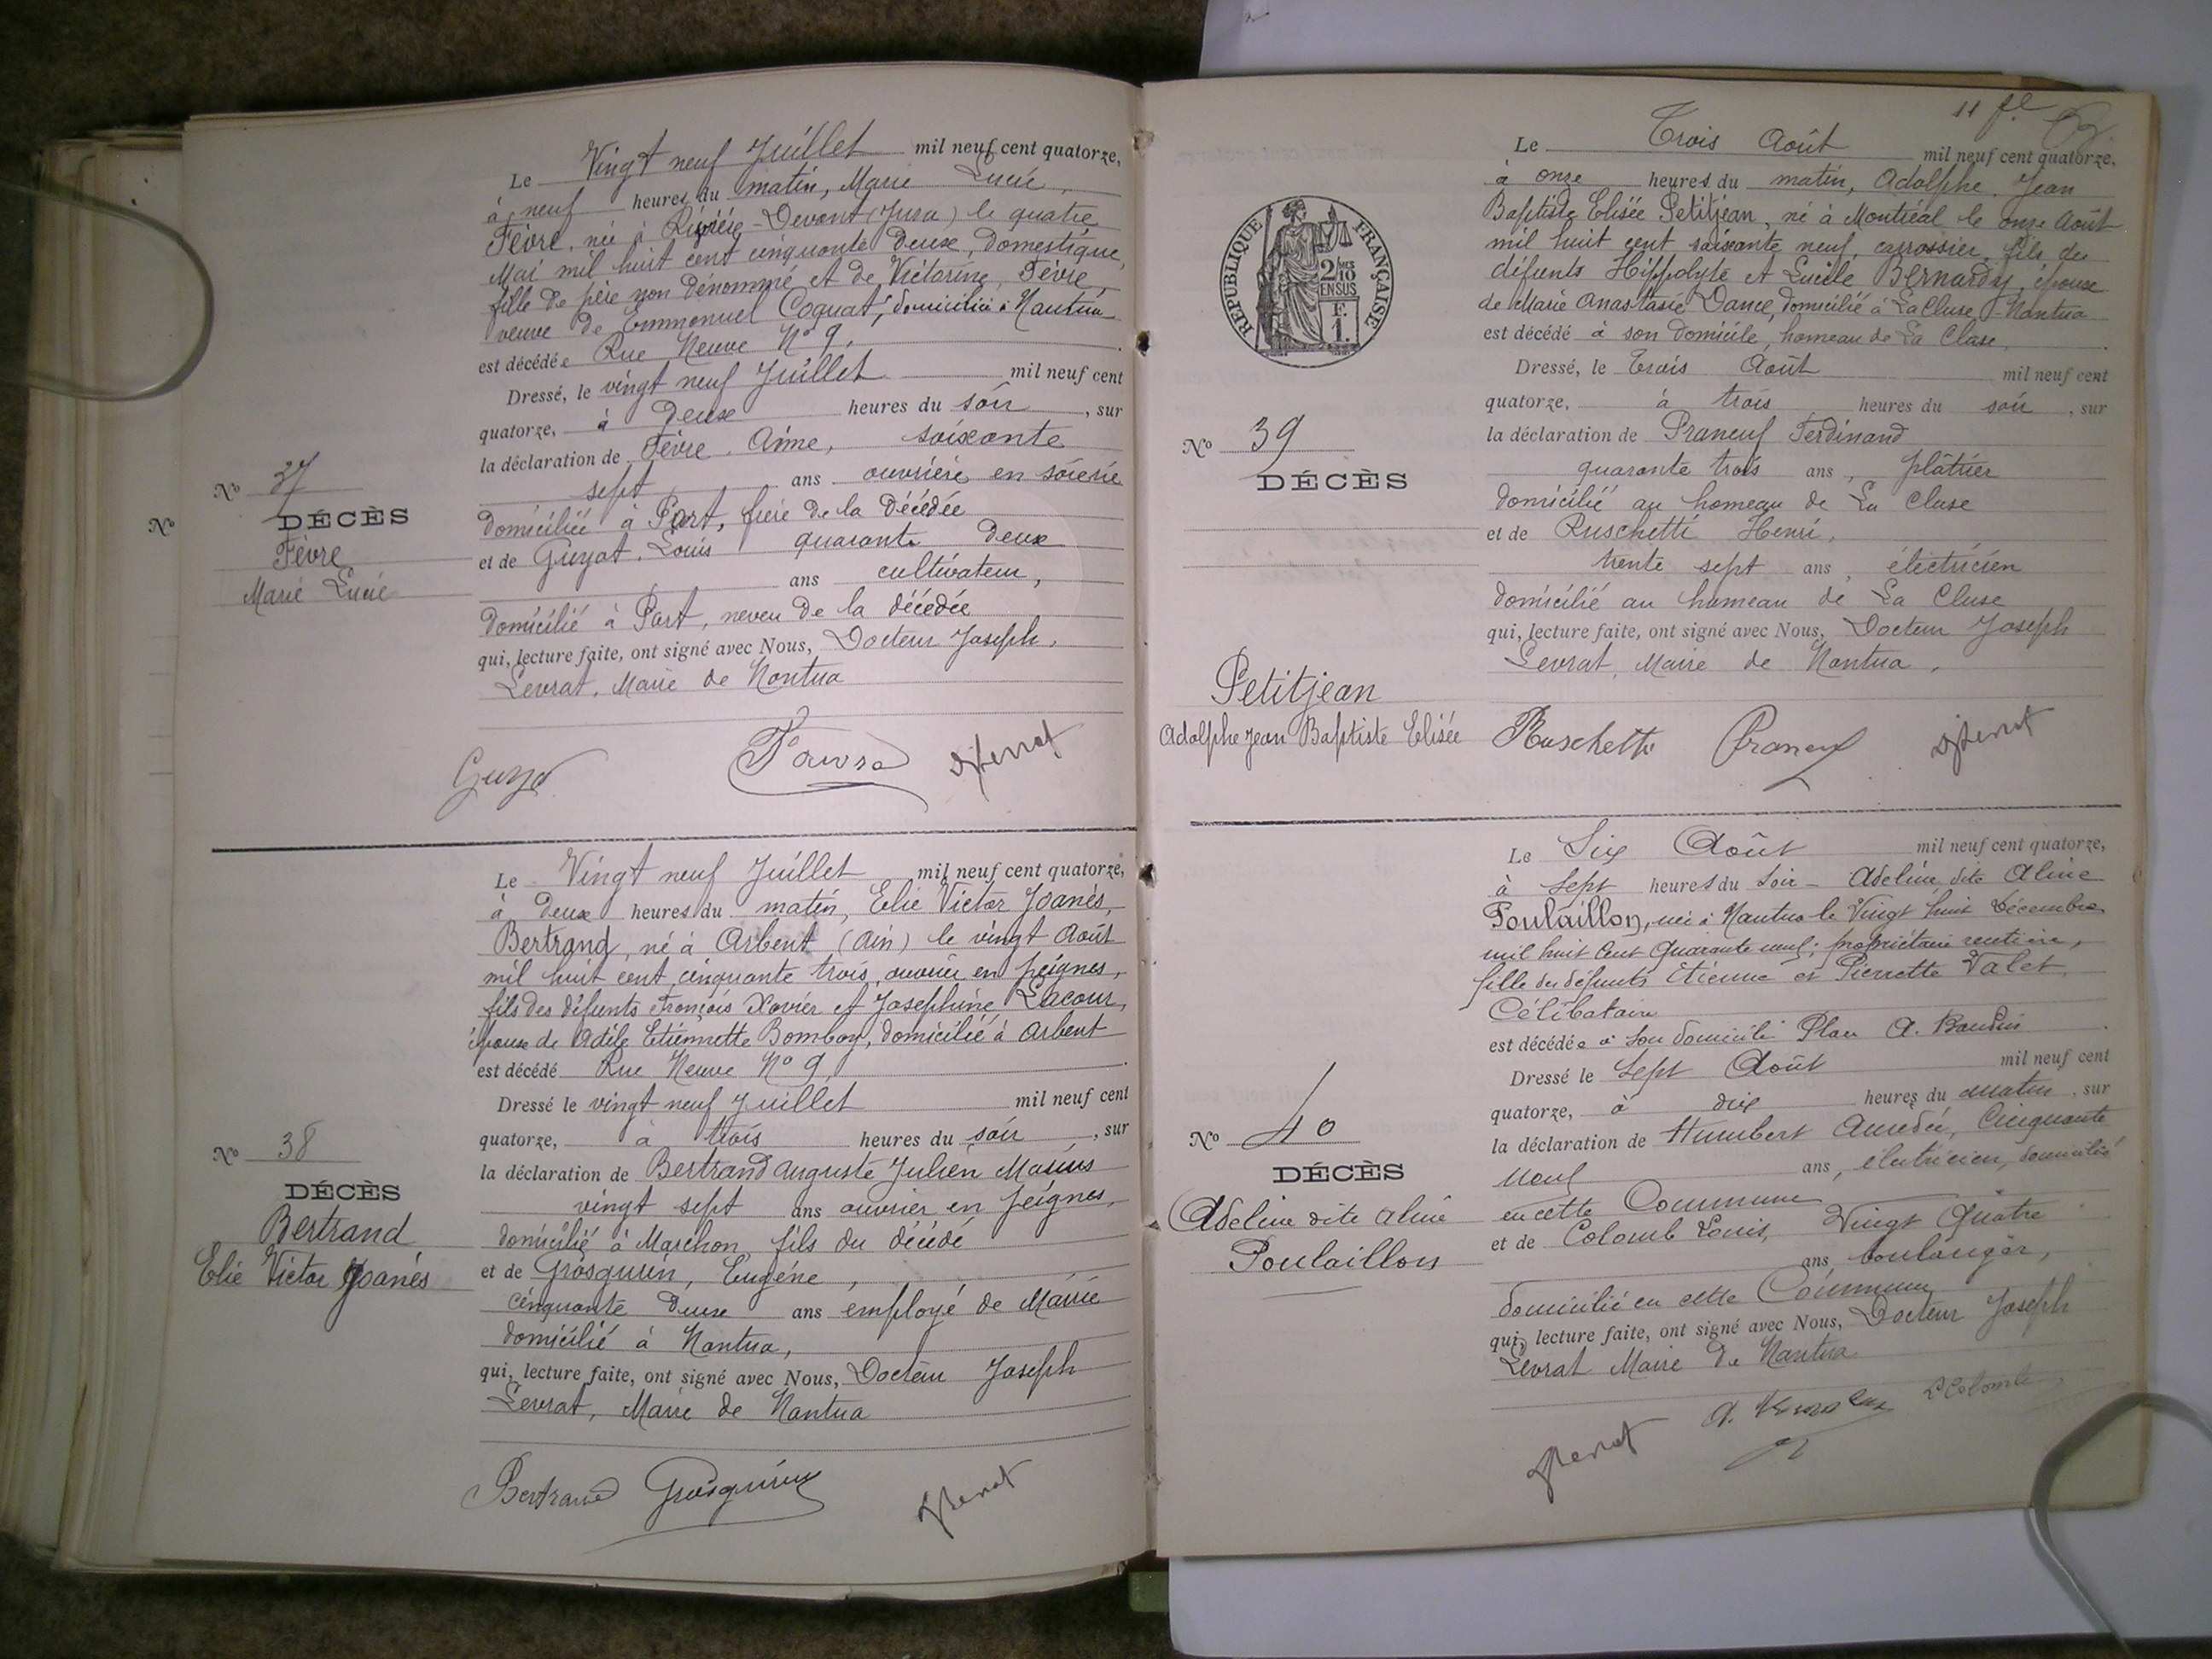 Le Vingt neuf Juillet mil neuf cent quatorze,
à neuf heures du matin, Marie Lucie,
Fèvre, née à Rivière-Devant (Jura) le quatre
Mai mil huit cent cinquante deux, domestique,
fille de père non dénommé et de Victorine, Fèvre,
veuve de Emmanuel Coquat, domiciliée à Nantua
est décédée Rue Neuve N° 9,
Dressé, le vingt neuf Juillet mil neuf cent
quatorze, à deux heures du soir, sur
la déclaration de Fèvre, Aimé, soixante
sept ans ouvrière en soierie
domiciliée à Port, frère de la décédée
et de Guyot, Louis quarante deux
ans cultivateur,
domicilié à Port, neveu de la décédée
qui, lecture faite, ont signé avec Nous, Docteur Joseph,
Levrat, Maire de Nantua
N° 37
N°
DÉCÈS
Fèvre
Marie Lucie
Le Vingt neuf Juillet mil neuf cent quatorze,
à deux heures du matin, Elie Victor Joanès,
Bertrand, né à Arbent (Ain) le vingt Août
mil huit cent cinquante trois, ouvrier en peignes,
fils des défunts François Xavier et Josephine Lacour,
époux de Adèle Etiennette Bomboy, domicilié à Arbent
est décédé Rue Neuve N° 9,
Dressé le vingt neuf Juillet mil neuf cent
quatorze, à trois heures du soir, sur
la déclaration de Bertrand Auguste Julien Marius
vingt sept ans ouvrier en peignes,
domicilié à Marchon, fils du décédé
et de Grosgurin, Eugène,
cinquante deux ans employé de Mairie
domicilié à Nantua,
qui, lecture faite, ont signé avec Nous, Docteur Joseph
Levrat, Maire de Nantua
Bertrand Grosgurin
N° 38
DÉCÈS
Bertrand
Elie Victor Joanès
11 fe
Le Trois Août mil neuf cent quatorze,
à onze heures du matin, Adolphe, Jean
Baptiste Elisée Petitjean, né à Montréal le onze Août
mil huit cent soixante neuf, carrossier, fils des
défunts Hippolyte et Lucile Bernardy, époux
de Marie Anastasie Dance, domicilié à La Cluse-Nantua
est décédé à son domicile, hameau de La Cluse,
Dressé, le Trois Août mil neuf cent
quatorze, à trois heures du soir, sur
la déclaration de Praneuf Ferdinand
quarante trois ans, plâtrier
domicilié au hameau de La Cluse
et de Ruschetti Henri,
trente sept ans, électricien
domicilié au hameau de La Cluse
qui, lecture faite, ont signé avec Nous, Docteur Joseph
Levrat, Maire de Nantua,
Ruschetti Praneuf
RÉPUBLIQUE FRANÇAISE
2/10 EN SUS
F. 1.
N° 39
DÉCÈS
Petitjean
Adolphe Jean Baptiste Elisée
Le Six Août mil neuf cent quatorze,
à Sept heures du soir - Adeline dite Aline
Poulaillon, née à Nantua le Vingt huit Décembre
mil huit Cent Quarante neuf; propriétaire rentière,
fille des défunts Etienne et Pierrette Valet,
Célibataire
est décédée à son domicile Place A. Baudin
Dressé le Sept Août mil neuf cent
quatorze, à dix heures du matin, sur
la déclaration de Humbert Amédée, Cinquante
neuf ans, électricien, domicilié
en cette Commune
et de Colomb Louis, Vingt Quatre
ans boulanger,
domicilié en cette Commune
qui, lecture faite, ont signé avec Nous, Docteur Joseph
Levrat Maire de Nantua
L Colomb
N° 40
DÉCÈS
Adeline dite Aline
Poulaillon